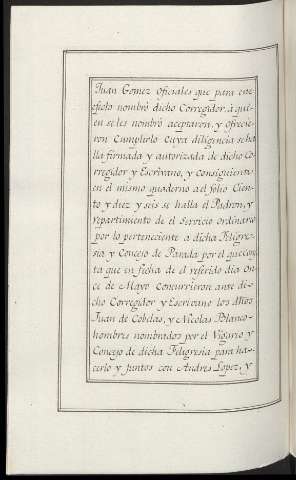 Juan Gomez Oficiales que para este
efecto nombró dicho Corregidor, á qui-
en se les nombró aceptaron, y ofrecie-
ron Cumplirlo Cuya diligencia se ha-
lla firmada y autorizada de dicho Co-
rregidor y Escrivano, y consiguiente
en el mismo quaderno a el folio Cien-
to y diez y seis se halla el Padron, y
repartimiento de el Servicio Ordinario
por lo perteneciente a dicha Feligre-
sia, y Concejo de Parada por el que cons-
ta que en fecha de el referido dia On-
ce de Mayo Concurrieron ante di-
cho Corregidor y Escrivano los dhos
Juan de Cobelas, y Nicolas Blanco
hombres nombrados por el Vigario y
Concejo de dicha Feligresia para ha-
cerlo y juntos con Andres Lopez, y